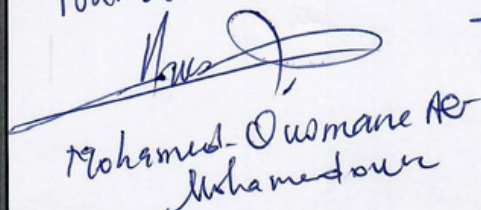 Mohamed-Ousmane Ag
Mohamedoun